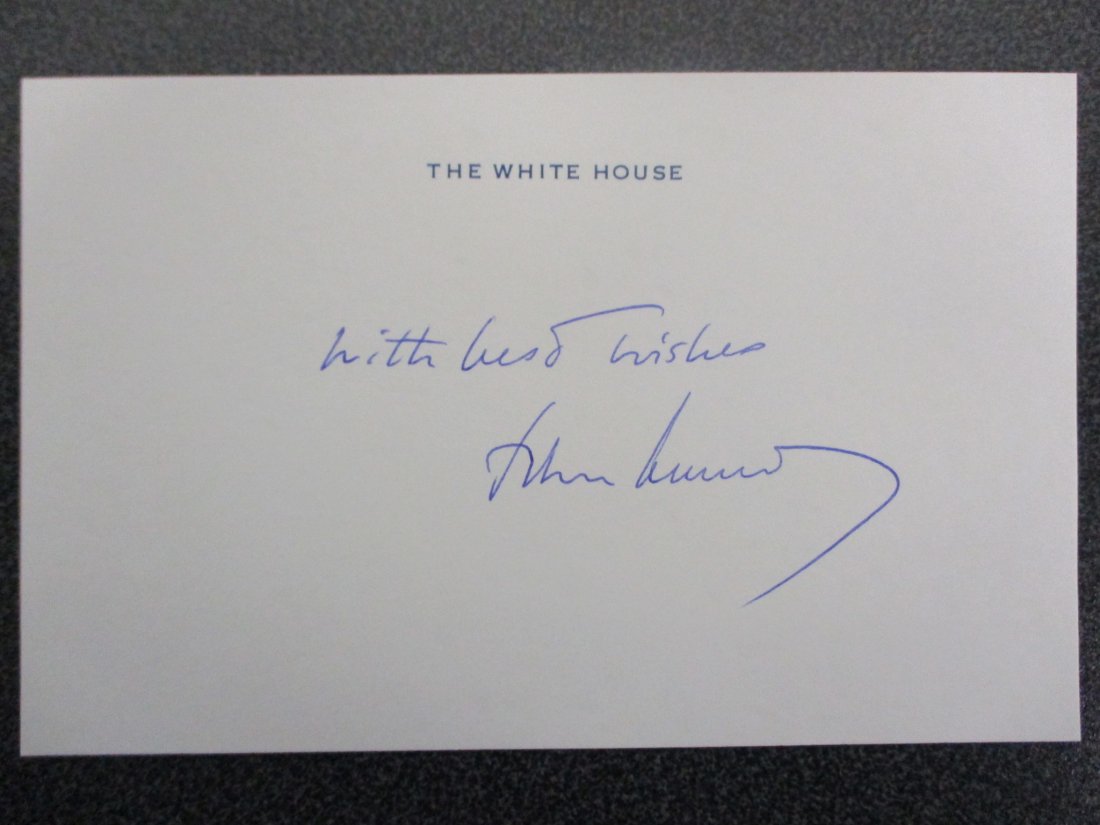 THE WHITE HOUSE
with best wishes
John